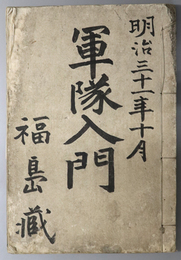 明治三十一年十月
軍隊入門
福島藏